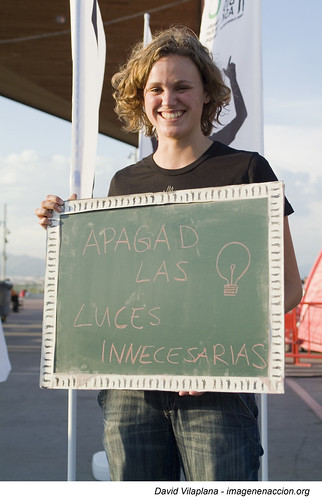 APAGAD
LAS
LUCES
INNECESARIAS
David Vilaplana - imagenenaccion.org